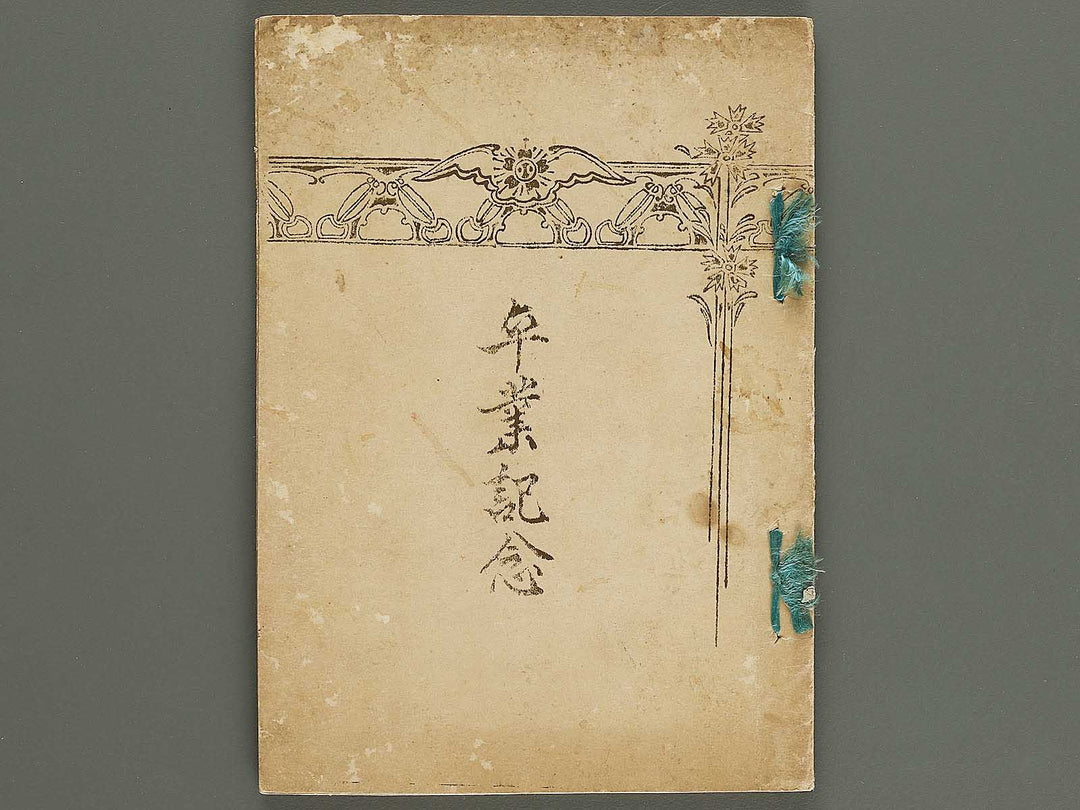 卒業記念